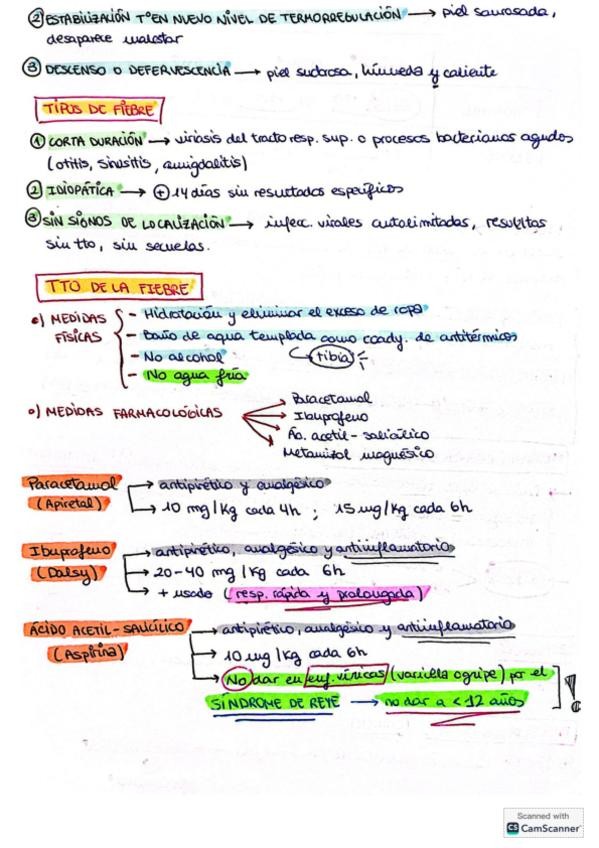 ② ESTABILIZACIÓN Tº EN NUEVO NIVEL DE TERMORREGULACIÓN → piel sonrosada,
desaparece malestar
③ DESCENSO O DEFERVESCENCIA → piel sudorosa, húmeda y caliente
TIPOS DE FIEBRE
① CORTA DURACIÓN → viriasis del tracto resp. sup. o procesos bacterianos agudos
(otitis, sinusitis, amigdalitis)
② IDIOPÁTICA → ⊕ 14 días sin resultados específicos
③ SIN SIGNOS DE LOCALIZACIÓN → infecc. virales autolimitadas, resueltas
sin tto, sin secuelas.
TTO DE LA FIEBRE
o) MEDIDAS FÍSICAS
- Hidratación y eliminar el exceso de ropa
- Baño de agua templada como coady. de antitérmicos
- No alcohol
tibia
- No agua fría
o) MEDIDAS FARMACOLÓGICAS
Paracetamol
Ibuprofeno
Ác. acetil-salicílico
Metamizol magnésico
Paracetamol → antipirético y analgésico
(Apiretal) → 10 mg/Kg cada 4h ; 15 mg/Kg cada 6h
Ibuprofeno → antipirético, analgésico y antiinflamatorio
(Dalsy) → 20-40 mg/Kg cada 6h
→ + usado (resp. rápida y prolongada)
ÁCIDO ACETIL-SALICÍLICO → antipirético, analgésico y antiinflamatorio
(Aspirina) → 10 mg/Kg cada 6h
→ No dar en enf. víricas (varicella o gripe) por el
SÍNDROME DE REYE → no dar a < 12 años !
Scanned with
CS CamScanner